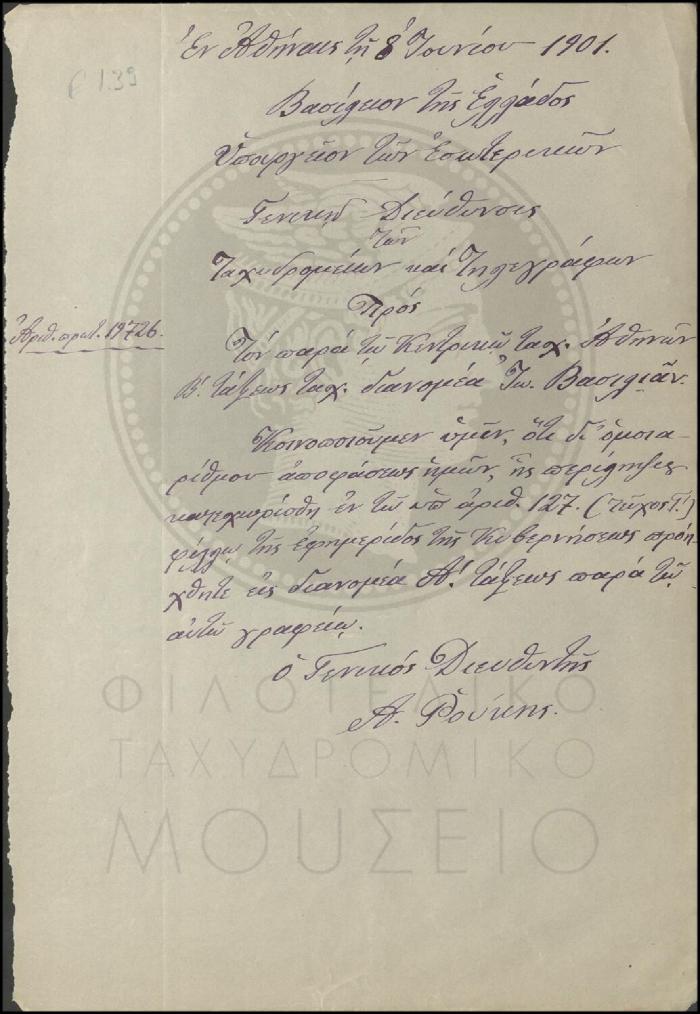 Ἐν Ἀθήναις τῇ 8 Ἰουνίου 1901.
139
Βασίλειον τῆς Ἑλλάδος
Ὑπουργεῖον τῶν Ἐσωτερικῶν
Γενικὴ Διεύθυνσις
τῶν
Ταχυδρομείων καὶ Τηλεγράφων
Πρός
Ἀριθ. πρωτ. 19726.
Τὸν παρὰ τῷ Κεντρικῷ ταχ. Ἀθηνῶν
Β΄. τάξεως ταχ. διανομέα Ἰω. Βασιλιᾶν.
Κοινοποιοῦμεν ὑμῖν, ὅτι δι' ὁμοια-
ρίθμου ἀποφάσεως ἡμῶν, ἧς περίληψις
κατεχωρίσθη ἐν τῷ ὑπ' ἀριθ. 127. (τεῦχος Γ΄.)
φύλλῳ τῆς Ἐφημερίδος τῆς Κυβερνήσεως προή-
χθητε εἰς διανομέα Α΄. τάξεως παρὰ τῷ
αὐτῷ γραφείῳ.
ὁ Γενικός Διευθυντής
Α. Ῥούκης.
ΦΙΛΟΤΕΛΙΚΟ
ΤΑΧΥΔΡΟΜΙΚΟ
ΜΟΥΣΕΙΟ